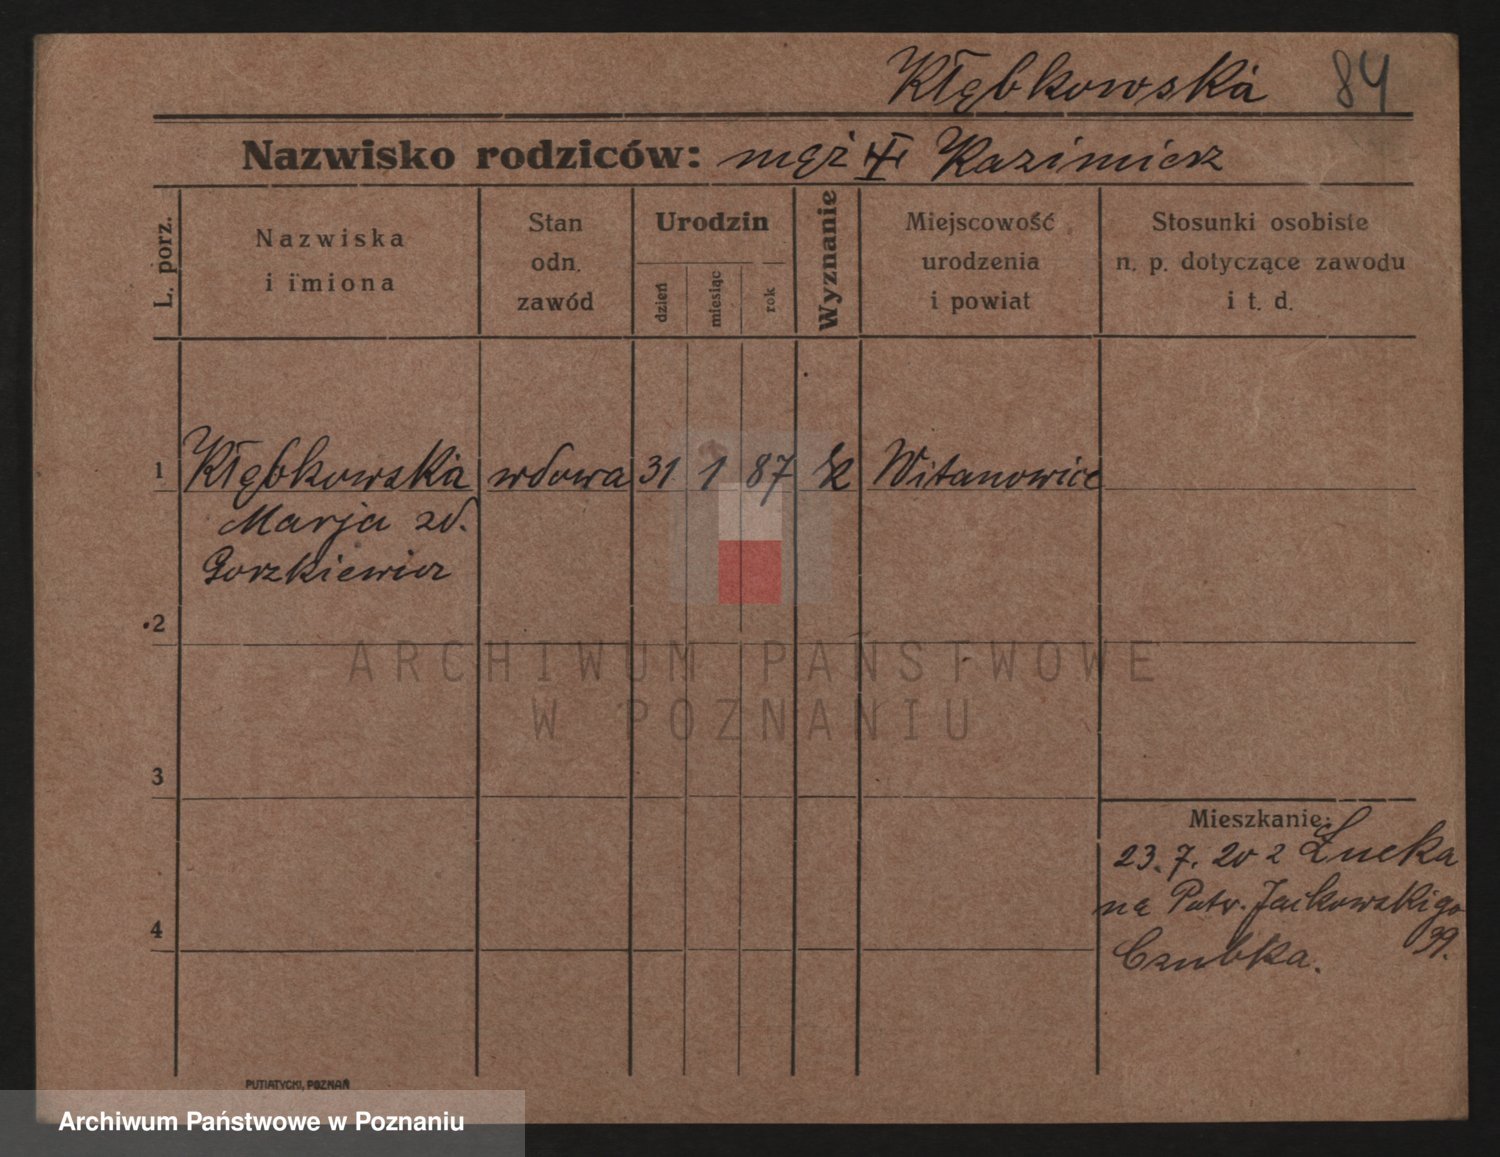 Kłębkowska 84
Nazwisko rodziców: mąż Kazimierz
L. porz.
Nazwiska
i imiona
Stan
odn.
zawód
Urodzin
dzień
miesiąc
rok
Wyznanie
Miejscowość
urodzenia
i powiat
Stosunki osobiste
n. p. dotyczące zawodu
i t. d.
1 Kłębkowska wdowa 31 1 87 k Witanowice
Marja zd.
Gorzkiewicz
2
ARCHIWUM PAŃSTWOWE
W POZNANIU
3
Mieszkanie:
23. 7. 20 z Łucka
na Patr. Jackowskigo
39.
4
Czubka.
PUTIATYCKI, POZNAŃ
Archiwum Państwowe w Poznaniu